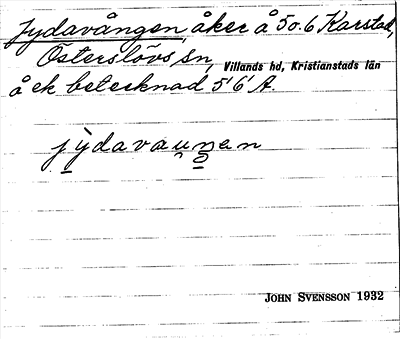 Jydavången, åker å 5 o. 6 Karstad,
Österslövs sn, Villands hd, Kristianstads län
å ek betecknad 5' 6' A.
jydavaunen
JOHN SVENSSON 1932